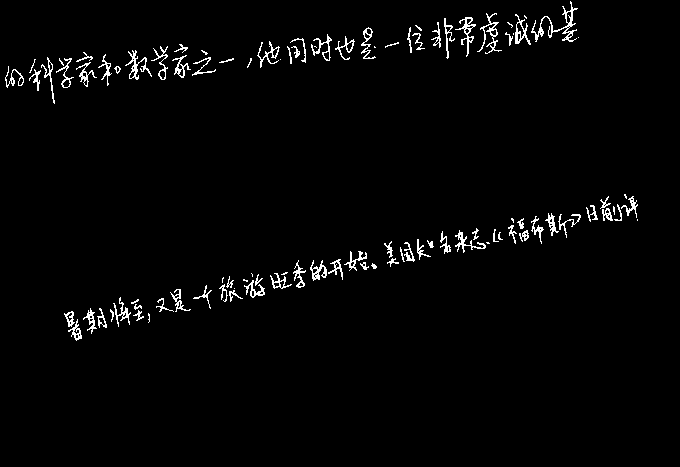 的科学家和数学家之一,他同时也是一位非常虔诚的基
暑期将至,又是一个旅游旺季的开始。美国知名杂志《福布斯》日前评